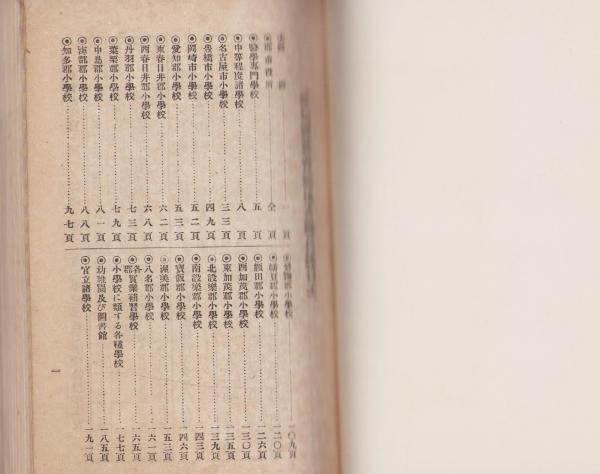 ◉郡市役所……全頁
◉醫學專門學校……五頁
◉中等程度諸學校……八頁
◉名古屋市小學校……三三頁
◉豊橋市小學校……四九頁
◉岡崎市小學校……五二頁
◉愛知郡小學校……五三頁
◉東春日井郡小學校……六二頁
◉西春日井郡小學校……六八頁
◉丹羽郡小學校……七三頁
◉葉栗郡小學校……七九頁
◉中島郡小學校……八一頁
◉海部郡小學校……八八頁
◉知多郡小學校……九七頁
郡小學校……一〇九頁
郡小學校……一二〇頁
◉額田郡小學校……一二六頁
◉西加茂郡小學校……一三〇頁
◉東加茂郡小學校……一三五頁
◉北設樂郡小學校……一三九頁
◉南設樂郡小學校……一四三頁
◉寶飯郡小學校……一四六頁
◉渥美郡小學校……一五三頁
◉八名郡小學校……一六一頁
◉各郡實業補習學校……一六五頁
◉小學校に類する各種學校……一七七頁
◉幼稚園及び圖書館……一八五頁
◉官立諸學校……一九一頁
一